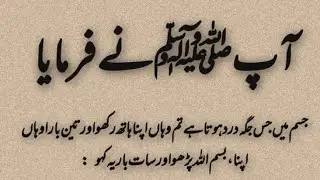 آپ ﷺ نے فرمایا
جسم میں جس جگہ درد ہوتا ہے تم وہاں اپنا ہاتھ رکھو اور تین بار اوہاں
اپنا، بسم اللہ پڑھو اور سات بار یہ کہو :